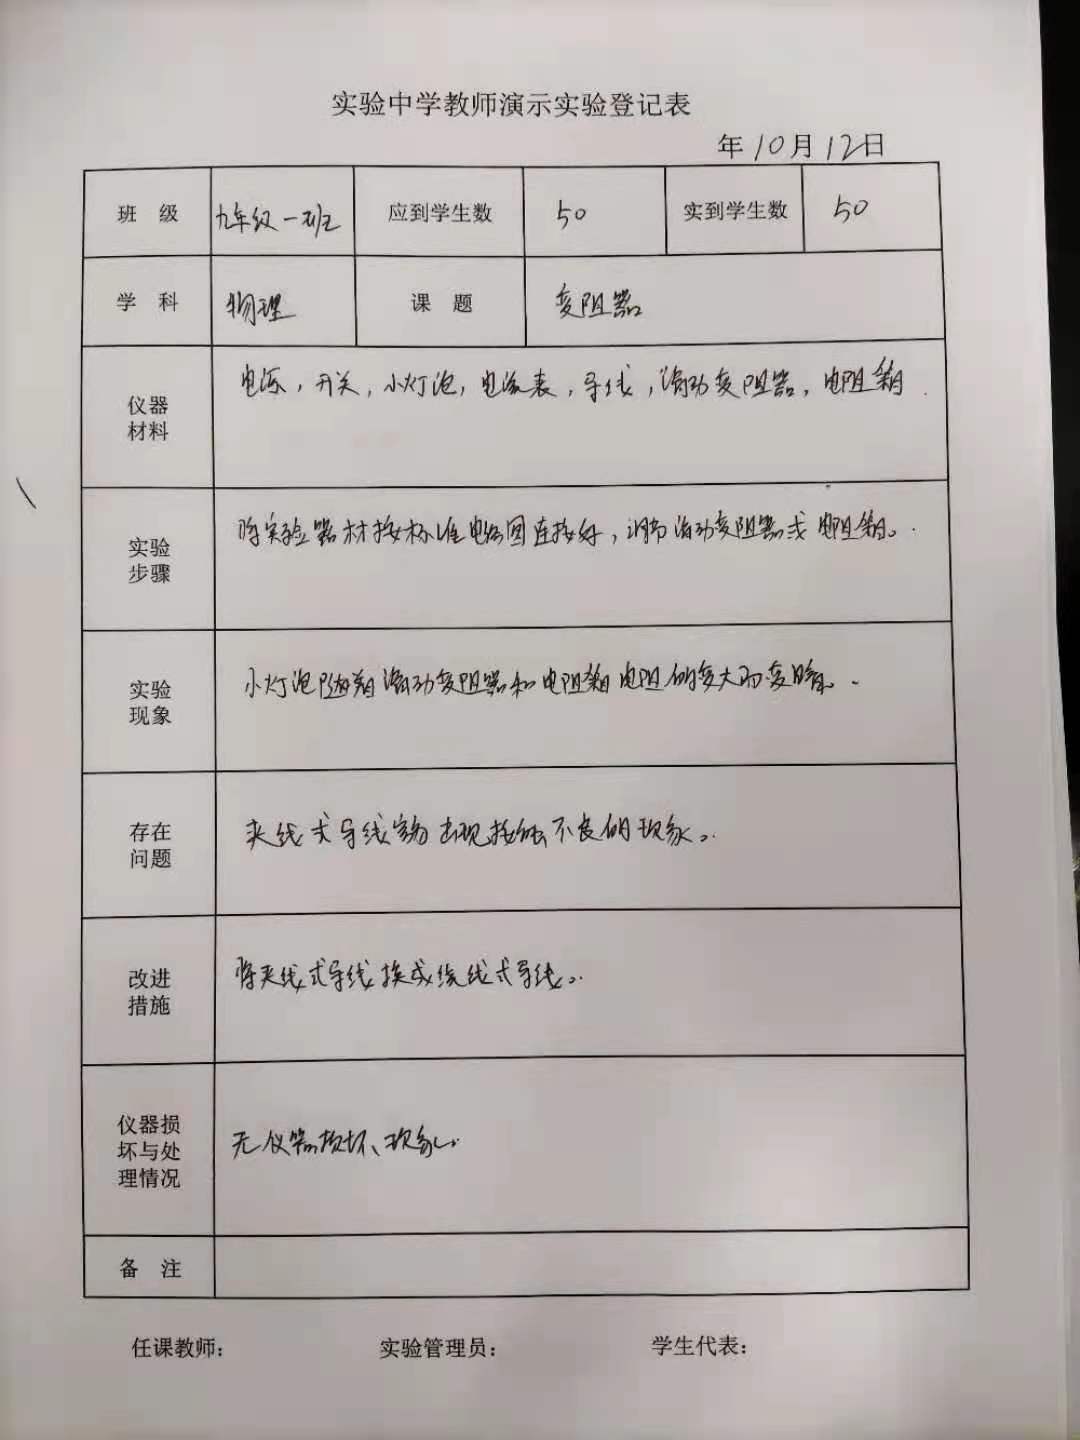 实验中学教师演示实验登记表
年10月12日
班 级 九年级一班 应到学生数 50 实到学生数 50
学 科 物理 课 题 变阻器
仪器
材料
电源，开关，小灯泡，电流表，导线，滑动变阻器，电阻箱
实验
步骤
将实验器材按标准电路图连接好，调节滑动变阻器或电阻箱。
实验
现象
小灯泡随着滑动变阻器和电阻箱电阻的变大而变暗。
存在
问题
夹线式导线容易出现接触不良的现象。
改进
措施
将夹线式导线换成绕线式导线。
仪器损
坏与处
理情况
无仪器损坏、现象。
备 注
任课教师： 实验管理员： 学生代表：